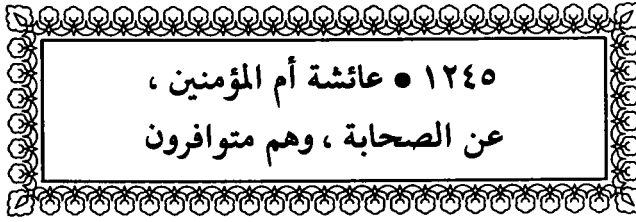 ١٢٤٥ ● عائشة أم المؤمنين ،
عن الصحابة ، وهم متوافرون